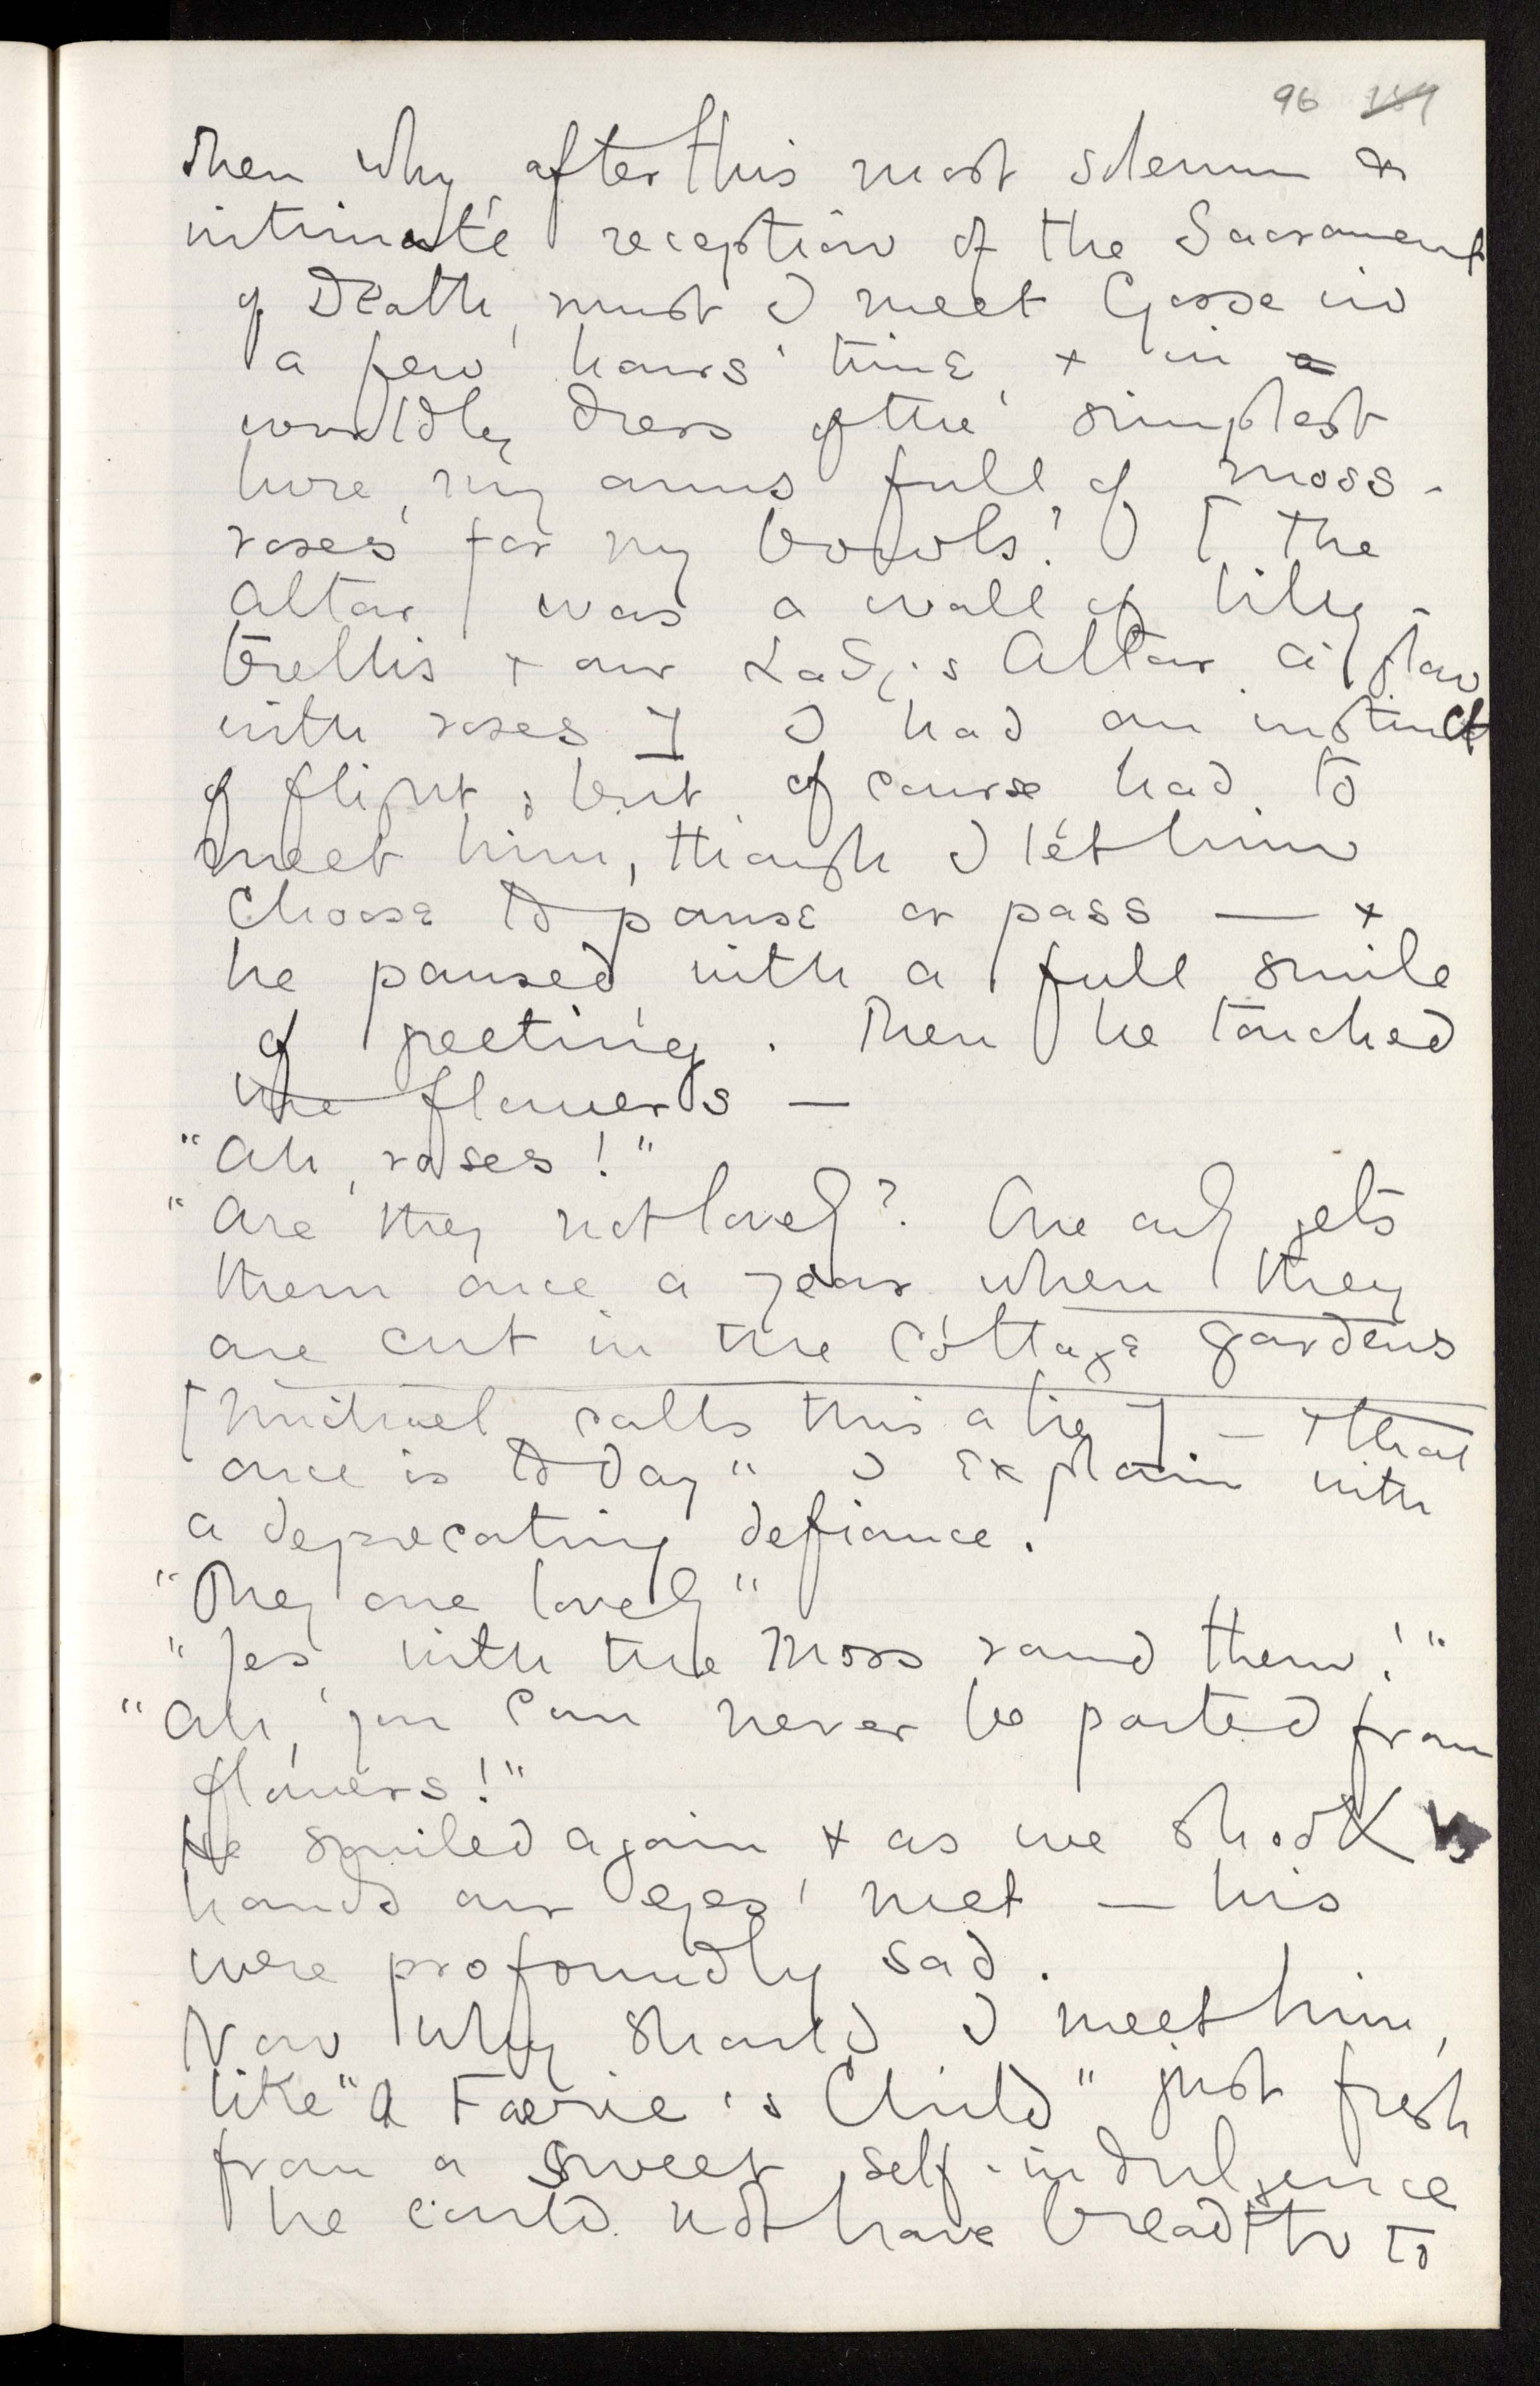 96 189
Then why, after this most solemn &
intimate reception of the Sacrament
of Death, must I meet Gosse in
a few hours' time, + in a
worldly dress of the simplest
hue, my arms full of moss-
roses for my bowls? [ the
Altar was a wall of lily-
trellis + our Lady's Altar a' flow
with roses ] I had an instinct
of flight; but of course had to
meet him, though I let him
choose to pause or pass — +
he paused with a full smile
of greeting. Then he touched
the flowers —
"Ah, roses!"
"Are they not lovely? One only gets
them once a year when they
are cut in the cottage gardens
[Michael calls this a lie] — + that
once is to day" I explain with
a deprecating defiance.
"They are lovely"
"Yes, with the moss round them!"
"Ah, you can never be parted from
flowers!"
He smiled again + as we shook
hands our eyes met — his
were profoundly sad.
Now why should I meet him,
like "A Faerie's Child" just fresh
from a sweet self-indulgence
he could not have breadth to